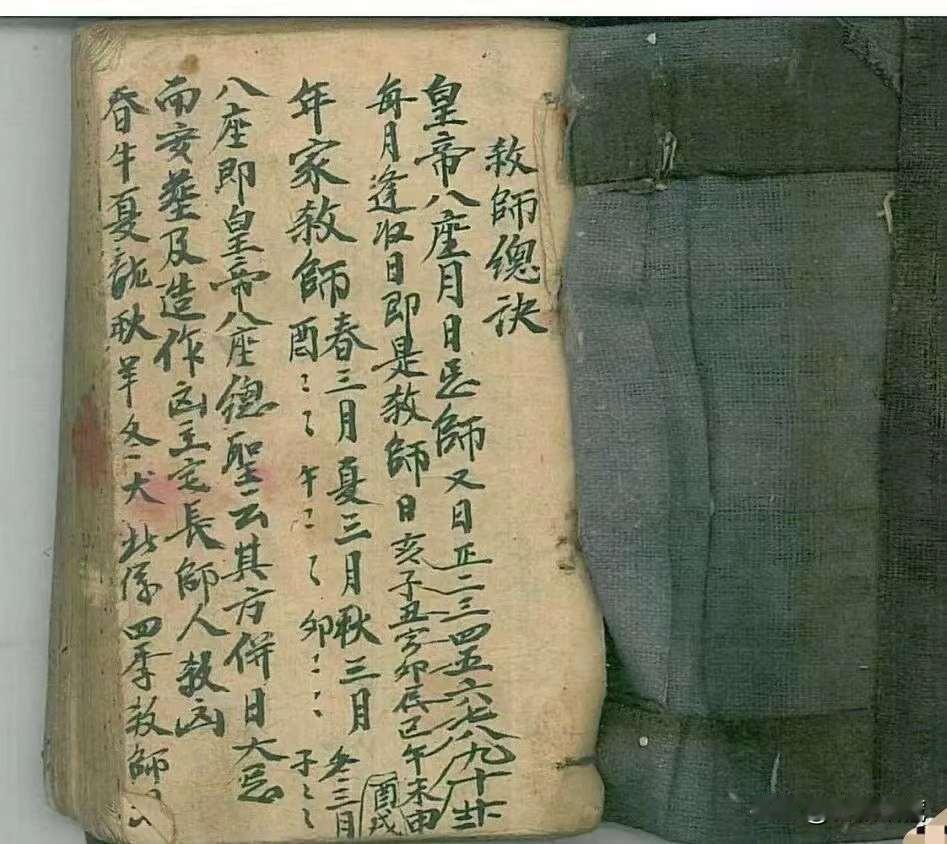 殺師總訣
皇帝八座月日忌師又日正二三四五六七八九十廿
每月逢収日即是殺師日亥子丑寅卯辰巳午未申酉戌
年家殺師春三月夏三月秋三月冬三月
酉〻〻午〻〻卯〻〻子〻〻
八座即皇帝八座總聖云其方併日大忌
而安葬及造作凶主宅長師人殺凶
春牛夏龍秋羊冬犬此係四季殺師